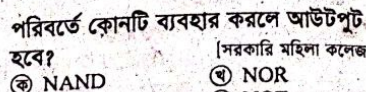 পরিবর্তে কোনটি ব্যবহার করলে আউটপুট
হবে? [সরকারি মহিলা কলেজ
ক NAND খ NOR